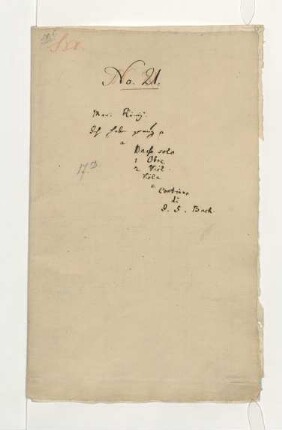 No. 21.
Mar. Reinig.
Ich habe genug p
a
Basso solo
1 Oboe
2 Viol.
Viola
e
Continuo
di
J. S. Bach.
173